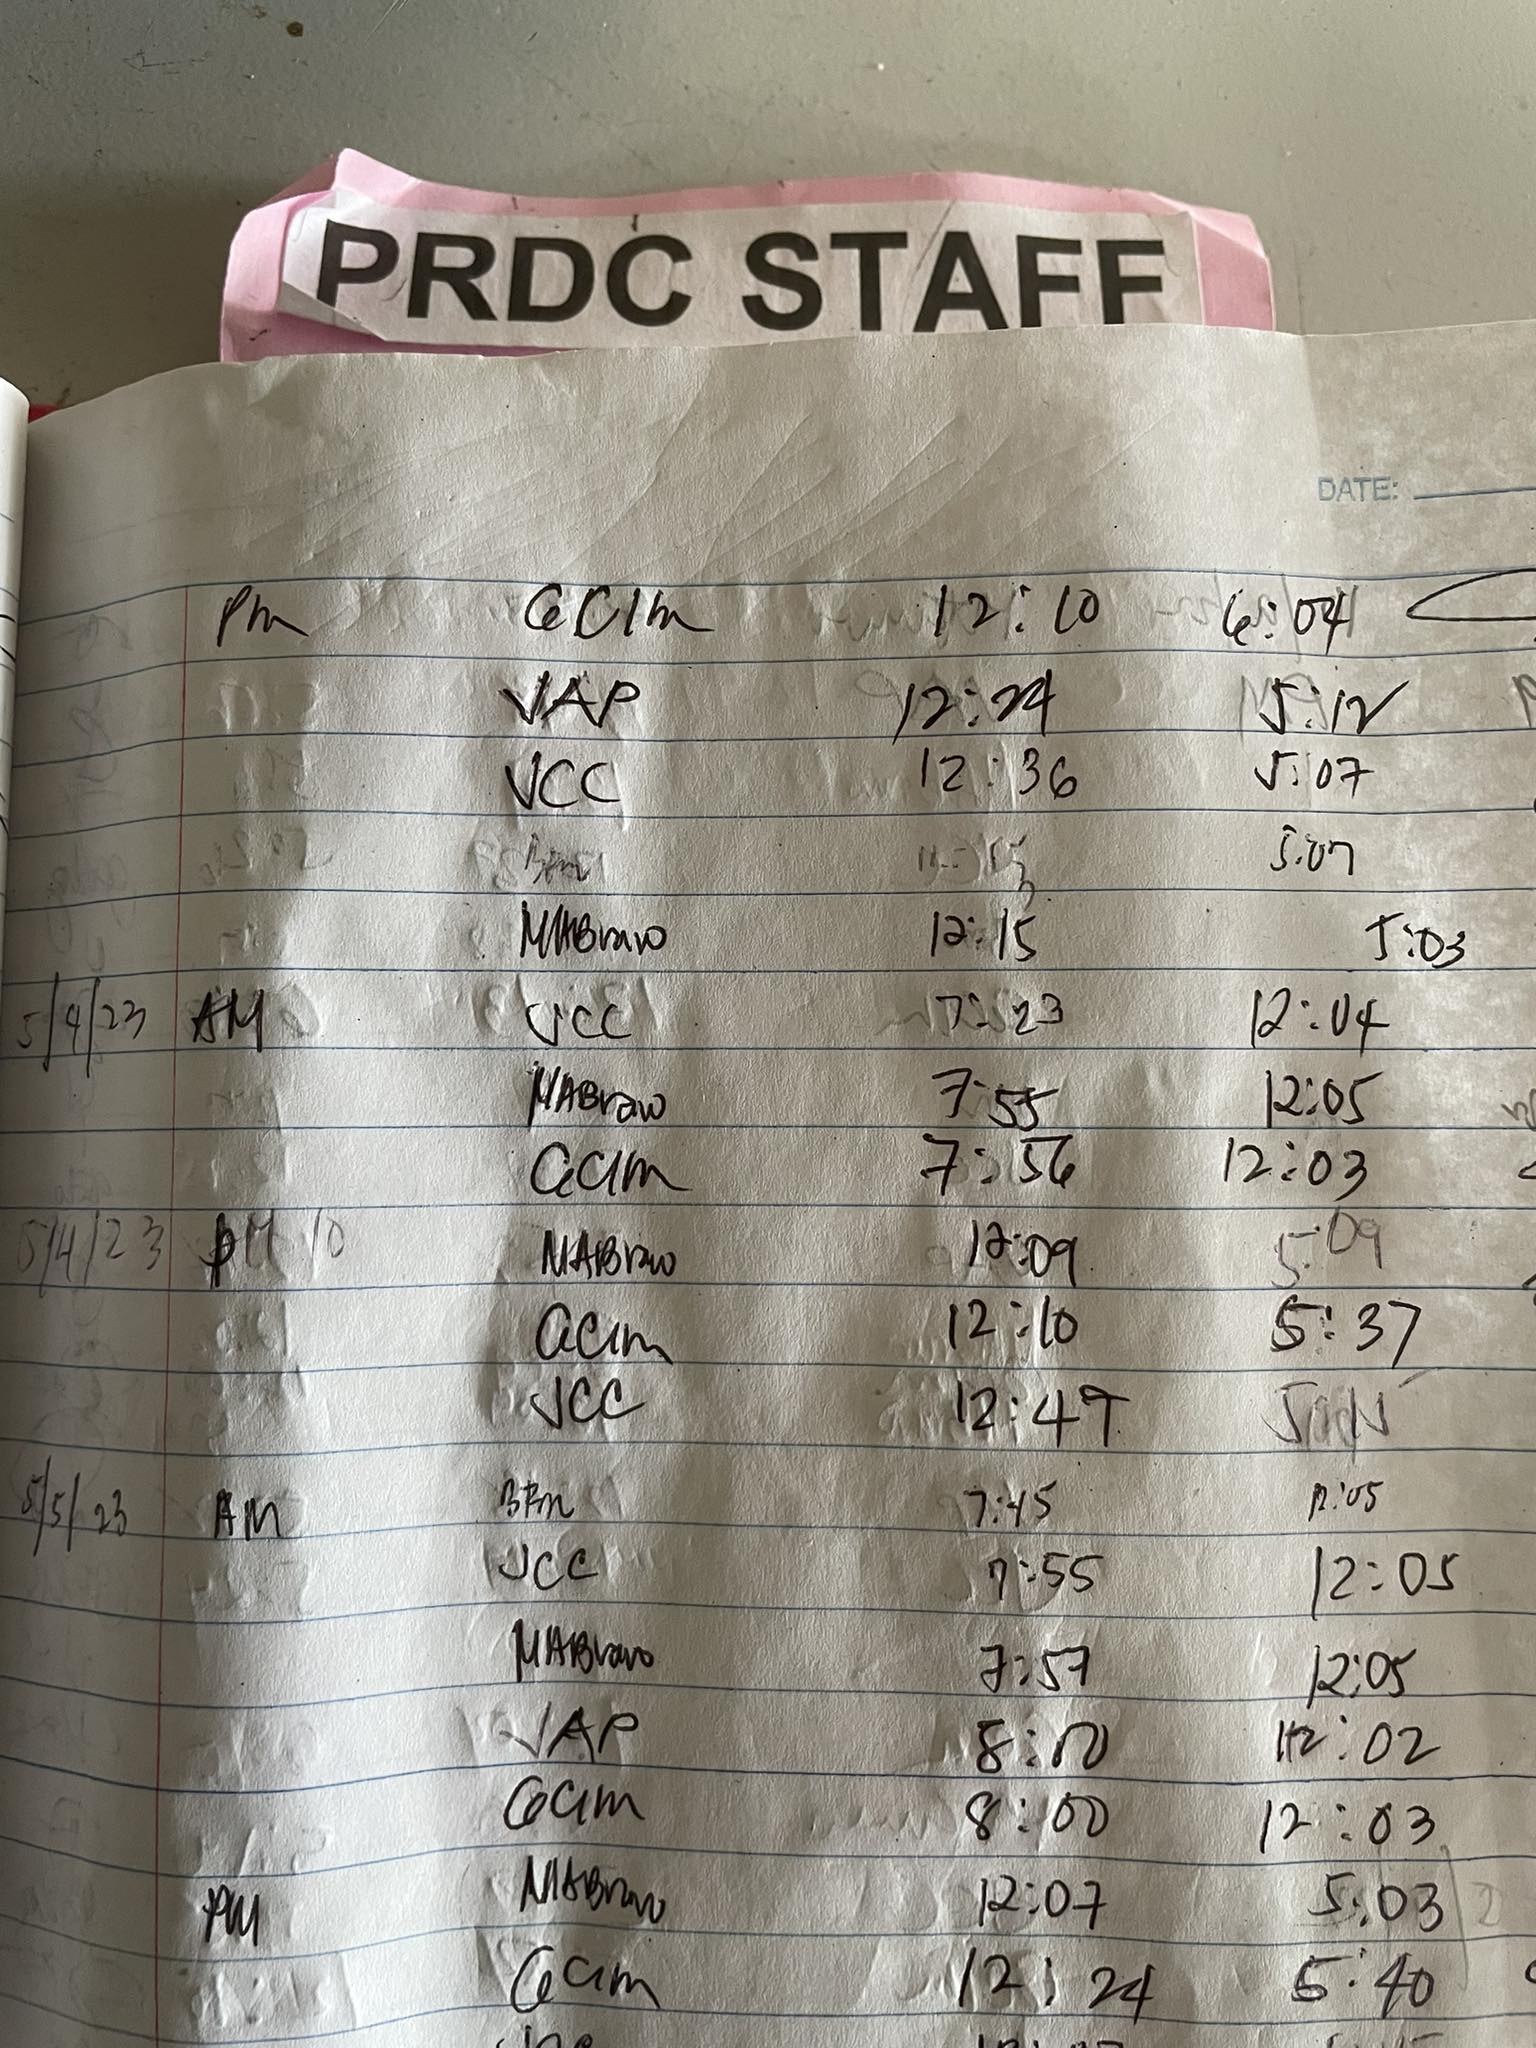 PRDC STAFF
DATE:
PM GCIM 12:10 6:04
VAP 12:24 5:12
VCC 12:36 5:07
BFM 5:07
MABravo 12:15 5:03
5/4/23 AM VCC 7:23 12:04
MABravo 7:55 12:05
GCIM 7:56 12:03
5/4/23 PM MABravo 12:09 5:09
GCIM 12:10 5:37
VCC 12:49
5/5/23 AM BFM 7:45 12:05
VCC 7:55 12:05
MABravo 7:57 12:05
VAP 8:00 12:02
GCIM 8:00 12:03
PM MABravo 12:07 5:03
GCIM 12:24 5:40